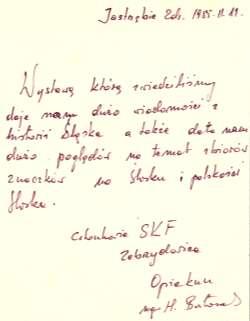 Jastrzębie Zdr. 1985.11.11.
Wystawa którą zwiedziliśmy
daje nam dużo wiadomości z
historii Śląska a także dała nam
dużo poglądów na temat zbiorów
znaczków na Śląsku i polskości
Śląska.
Członkowie SKF
Zebrzydowice
Opiekun
mgr H.